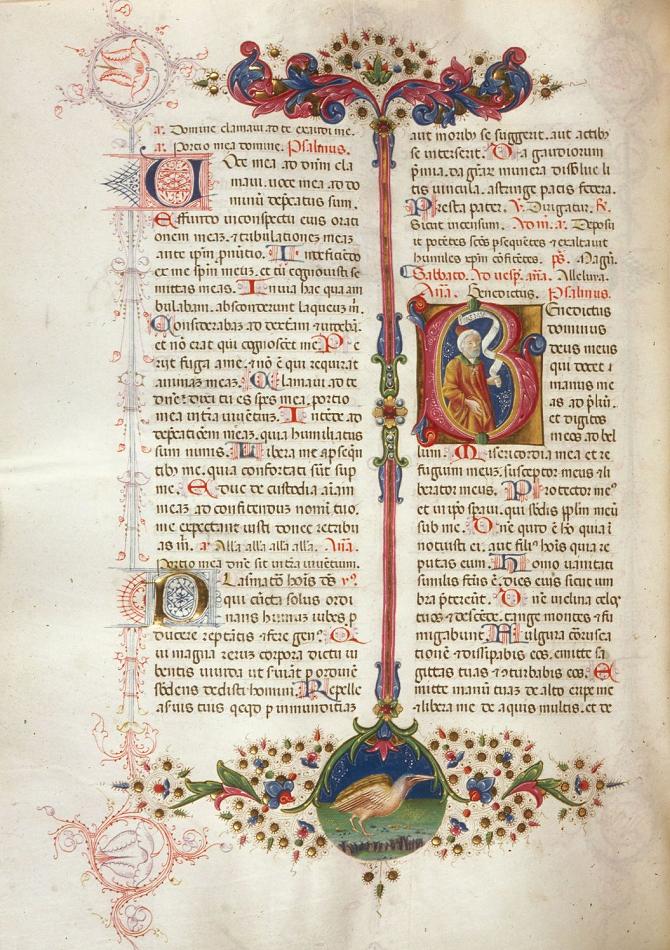 a. Domine clamaui ad te exaudi me.
a. Portio mea domine. Psalmus.
Uoce mea ad dñm cla
maui. uoce mea ad do
minũ dep̃catus sum.
Effundo in conspectu eius orati
onem meaz. & tribulationez meaz
ante ip̃m p̃nũtio. In deficiendo
ex me sp̃m meuz. et tu cognouisti se
mittas meas. In uia hac qua am
bulabam. absconderunt laqueuz m̃.
Considerabaz ad dextam & uidebã.
et nõ erat qui cognosc̃et me. Pe
rijt fuga a me. & nõ ẽ qui requirat
animaz meaz. Clamaui ad te
dñe. dixi tu es spes mea. portio
mea in t̃ra uiuẽtiuz. Intẽde ad
dep̃catiõẽm meaz. quia humiliatus
sum nimis. Libera me a p̃seq̃n
tibꝫ me. quia confortati sũt sup
me. Educ de custodia aĩam
meaz ad confitenduz nomĩ tuo.
me expectant iusti donec retribu
as m̃. a. Alla alla alla alla. Añã.
Portio mea dñe sit in t̃ra uiuẽtium.
Plasmator hoĩs ds̃ yꝰ.
qui cũcta solus ordi
nans humuz iubes p
ducere reptãtis & fere genꝰ. Q
ui magna reruz corpora dictu iu
bentis uiuida ut s̃uiãt p ordinẽ
s̃bdens dedisti homini. Repelle
a s̃uis tuis qcqd p inmundiciaz
aut moribꝫ se suggerit. aut actibꝫ
se interserit. Da gaudiorum
p̃mia. da gr̃az munera dissolue li
tis uincula. astringe pacis federa.
Presta pater. V. Dirigatur. R.
Sicut incensum. Ad m̃. a. Deposu
it potẽtes sc̃os p̃sequẽtes & exaltauit
humiles xp̃m cõfitẽtes. ps̃. Magñ.
Sabbato. Ad uesp̃. añã. Alleluya.
Añã. Benedictus. Psalmus.
Benedictus
dominus
deus meus
qui docet
manus me
as ad p̃liũ.
et digitos
meos ad bel
lum. Misericordia mea et re
fugium meuz. susceptor meus & li
berator meus. Protector meꝰ
et in ip̃o sp̃aui. qui s̃bdis pp̃lm meũ
sub me. Dñe quid ẽ hõ quia ĩ
notuisti ei. aut filiꝰ hoĩs quia re
putas eum. Homo uanitati
similis fctus ẽ. dies eius sicut um
bra p̃tereũt. Dñe inclina celos
tuos & descẽde. tange montes & fu
migabunt. Fulgura corusca
tionẽ & dissipabis eos. emitte sa
gittas tuas & ɔturbabis eos. E
mitte manũ tuaz de alto eripe me
& libera me de aquis multis. et de